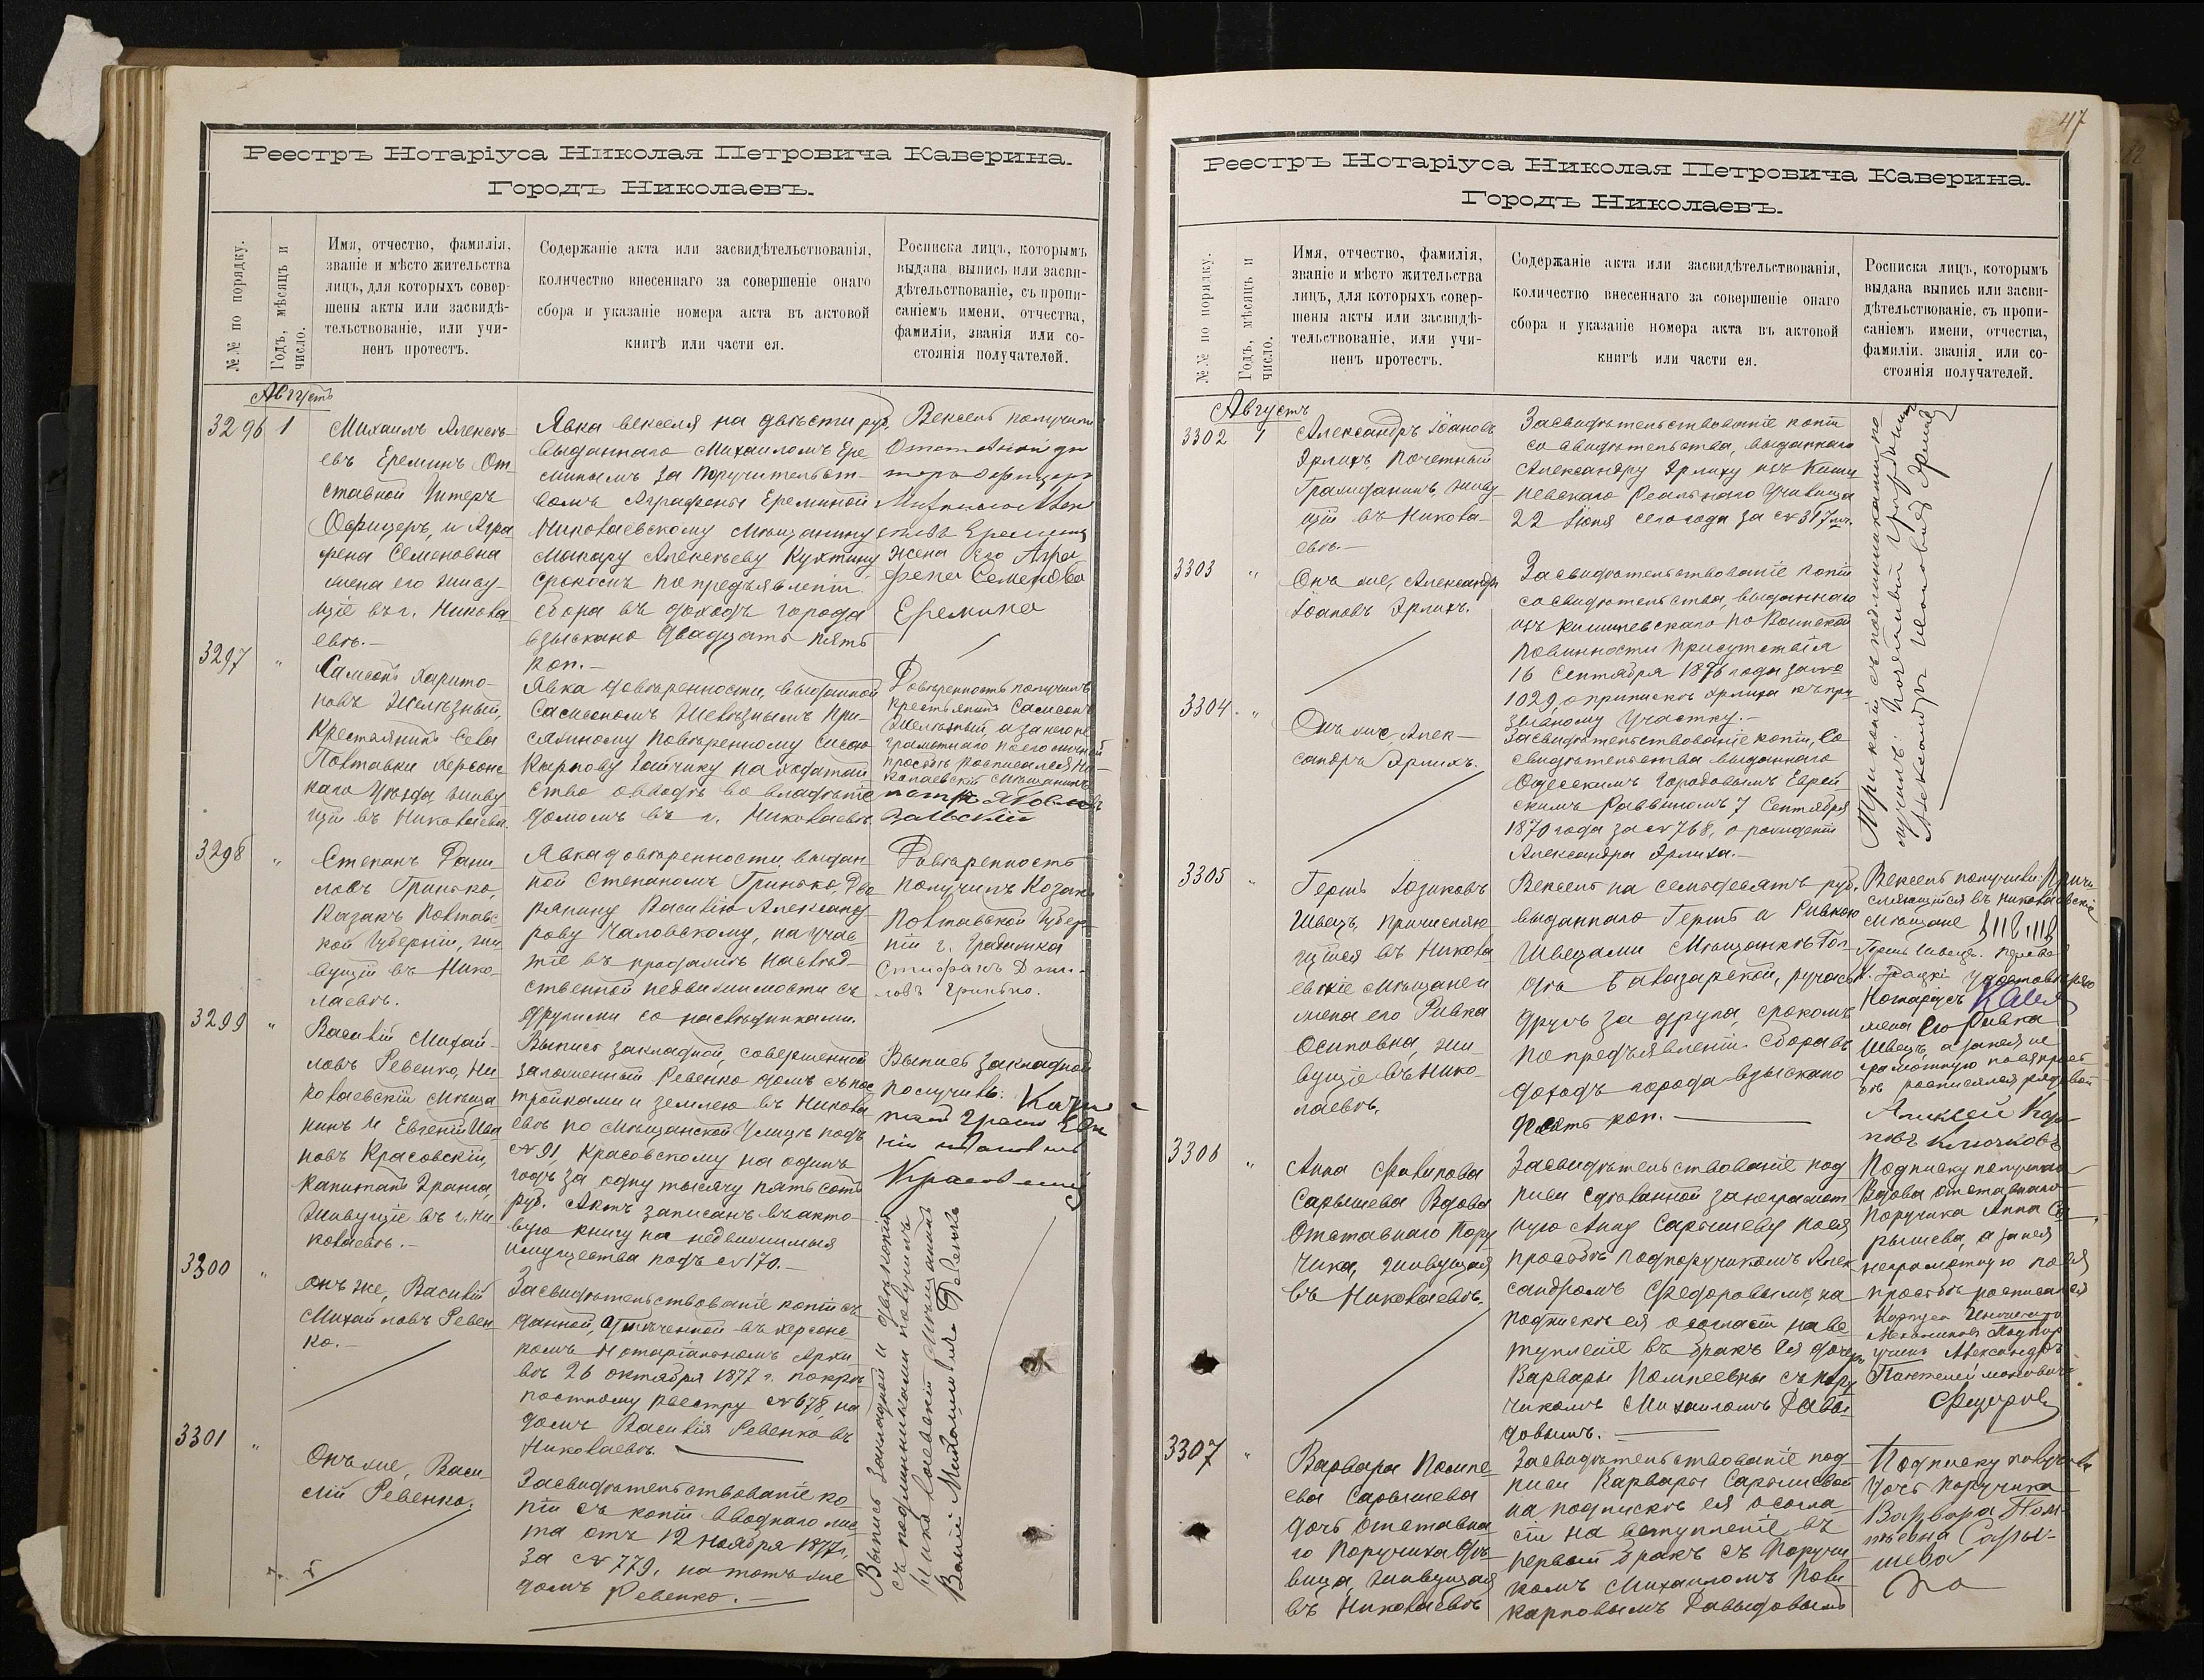 Реестръ Нотаріуса Николая Петровича Каверина.
Городъ Николаевъ.
№№ по порядку.
Годъ, мѣсяцъ и
число.
Имя, отчество, фамилія,
званіе и мѣсто жительства
лицъ, для которыхъ совер-
шены акты или засвидѣ-
тельствованіе, или учи-
ненъ протестъ.
Содержаніе акта или засвидѣтельствованія,
количество внесеннаго за совершеніе онаго
сбора и указаніе номера акта въ актовой
книгѣ или части ея.
Росписка лицъ, которымъ
выдана выпись или засви-
дѣтельствованіе, съ пропи-
саніемъ имени, отчества,
фамиліи, званія или со-
стоянія получателей.
Августъ
3296 1
Михаилъ Алексѣ-
евъ Ереминъ От-
ставной Унтеръ
Офицеръ, и Агра
фена Семеновна
жена его живу-
щіе въ г. Никола
евѣ.—
Явка векселя на двѣсти руб.
выданнаго Михаиломъ Ере
минымъ за поручительст-
вомъ Аграфены Ереминой
Николаевскому мѣщанину
Макару Алексѣеву Кухтину
срокомъ по предъявленіи.
сбора въ доходъ города
взыскано двадцать пять
коп.—
Вексель получили
Отставной ун
теръ офицеръ
Ереминъ
жена Его Агра
фена Семенова
Еремина
3297 "
Самсонъ Харито-
новъ Желѣзный,
Крестьянинъ села
Полтавки Херсонс
каго Уѣзда живу
щій въ Николаевѣ
Явка довѣренности, выданной
Самсономъ Желѣзнымъ При-
сяжному повѣренному
Карпову Зайчику на ходатай
ство о вводѣ во владѣніе
домомъ въ г. Николаевѣ
Довѣренность получилъ
Крестьянинъ Самсонъ
Желѣзный, а за него не
грамотнаго по его личной
просьбѣ росписался Ни
колаевскій мѣщанинъ
Петръ Яковлевъ
Зальскій
3298 "
Степанъ Дани
ловъ Гринько,
Казакъ Полтавс
кой Губерніи, жи
вущій въ Нико
лаевѣ.
Явка довѣренности выдан
ной Степаномъ Гринько, Дво
рянину Василію Александ
рову Чаловскому, на учас
тіе въ продажѣ наслѣд-
ственной недвижимости съ
другими со наслѣдниками.
Довѣренность
получилъ Козакъ
Полтавской Губер
ніи г. Градижска
Стефанъ Дани-
ловъ Гринько.
3299 "
Василій Михай-
ловъ Ревенко, Ни
колаевскій мѣща
нинъ и Евгеній Ива
новъ Красовскій,
Капитанъ 2 ранга,
живущіе въ г. Ни
колаевѣ.—
Выпись закладной, совершенной
заложенный Ревенко домъ съ пос
тройками и землею въ Никола
евѣ по Мѣщанской Улицѣ подъ
№ 91, Красовскому на одинъ
годъ за одну тысячу пятьсотъ
руб. Актъ записанъ въ акто-
вую книгу на недвижимыя
имущества подъ № 170.—
Выпись закладной
получилъ: Капи
танъ 2 ранга Евге
ній Ивановичъ
Красовскій
3300 "
Онъ же, Василій
Михайловъ Ревен
ко.—
Засвидѣтельствованіе копіи съ
данной, отмѣченной въ Херсонс
комъ Нотаріальномъ Архи
вѣ 26 октября 1877 г. по крѣ
постному реестру № 678, на
домъ Василія Ревенко въ
Николаевѣ.
3301 "
Онъ же, Васи
лій Ревенко.
Засвидѣтельствованіе ко
піи съ копіи вводнаго лис
та отъ 12 Ноября 1877 г.
за № 779, на тотъ же
домъ Ревенко.—
Выпись закладной и двѣ копіи
съ подлинниками получилъ
Николаевскій мѣщанинъ
Василій Михайловичъ Ревенко
47
Реестръ Нотаріуса Николая Петровича Каверина.
Городъ Николаевъ.
№№ по порядку.
Годъ, мѣсяцъ и
число.
Имя, отчество, фамилія,
званіе и мѣсто жительства
лицъ, для которыхъ совер-
шены акты или засвидѣ-
тельствованіе, или учи-
ненъ протестъ.
Содержаніе акта или засвидѣтельствованія,
количество внесеннаго за совершеніе онаго
сбора и указаніе номера акта въ актовой
книгѣ или части ея.
Росписка лицъ, которымъ
выдана выпись или засви-
дѣтельствованіе, съ пропи-
саніемъ имени, отчества,
фамиліи, званія, или со-
стоянія получателей.
Августъ
3302 1
Александръ Іоановъ
Эрлихъ, Почетный
Гражданинъ, живу
щій въ Никола-
евѣ.—
Засвидѣтельствованіе копіи
со свидѣтельства, выданнаго
Александру Эрлиху изъ Киши
невскаго Реальнаго Училища
22 Іюня сего года за № 317.
3303 "
Онъ же, Александръ
Іоановъ Эрлихъ.
Засвидѣтельствованіе копіи
со свидѣтельства, выданнаго
изъ Кишиневскаго по Воинской
повинности Присутствія
16 Сентября 1876 года за №
1029, о припискѣ Эрлиха къ при
зывному участку.—
3304 "
Онъ же, Алек-
сандръ Эрлихъ.
Засвидѣтельствованіе копіи, со
свидѣтельства выданнаго
Одесскимъ Городовымъ Еврей
скимъ Раввиномъ 7 Сентября
1870 года за № 768, о рожденіи
Александра Эрлиха.—
Три копіи съ подлинниками по
лучилъ: Почетный Гражданинъ
Александръ Ивановичъ Эрлихъ
3305 "
Гершъ Іозиковъ
Швецъ, причисляю
щійся въ Никола
евскіе мѣщане и
жена его Ривка
Осиповна, жи-
вущіе въ Нико-
лаевѣ.
Вексель на семьдесятъ руб.
выданнаго Гершъ и Ривкою
Швецами Мѣщанкѣ Гол
дѣ Балазарской, ручась
другъ за друга, срокомъ
по предъявленіи. Сбора въ
доходъ города взыскано
десять коп.—
Вексель получили: Причи-
сляющійся въ Николаевскіе
мѣщане
Гершъ Швецъ.
удостовѣряю
Нотаріусъ
жена его Ривка
Швецъ, а за нея не
грамотную по ея прось
бѣ росписался рядовой
Алексей Кар
повъ Клочковъ
3306 "
Анна Филипова
Сарышева Вдова
Отставнаго Пору
чика, живущая
въ Николаевѣ.
Засвидѣтельствованіе под
писи сдѣланной за неграмот
ную Анну Сарышеву по ея
просьбѣ подпоручикомъ Алек
сандромъ Федоровымъ, на
подпискѣ ея о согласіи на вс
тупленіе въ бракъ ея дочери
Варвары Помпеевны съ пору
чикомъ Михаиломъ Давы-
довымъ.—
Подписку получила
Вдова отставнаго
Поручика Анна Са
рышева, а за нея
неграмотную по ея
просьбѣ росписался
Корпуса Инженеръ
Механиковъ Подпор
учикъ Александръ
Пантелеймоновичъ
Федоровъ
3307 "
Варвара Помпе
ева Сарышева
дочь отставна
го Поручика дѣ-
вица, живущая
въ Николаевѣ
Засвидѣтельствованіе под
писи Варвары Сарышевой
на подпискѣ ея о согла
сіи на вступленіе въ
первый бракъ съ Поручи
комъ Михаиломъ Поли
карповымъ Давыдовымъ
Подписку получила
дочь поручика
Варвара Пом
пеевна Сары-
шева